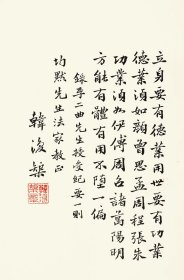 立身要有德業用世要有功業
德業須如顏曾思孟周程張朱
功業須如伊傅周召諸葛陽明
方能有體有用不墮一偏
錄李二曲先生授受紀要一則
均默先生法家教正
韓復榘